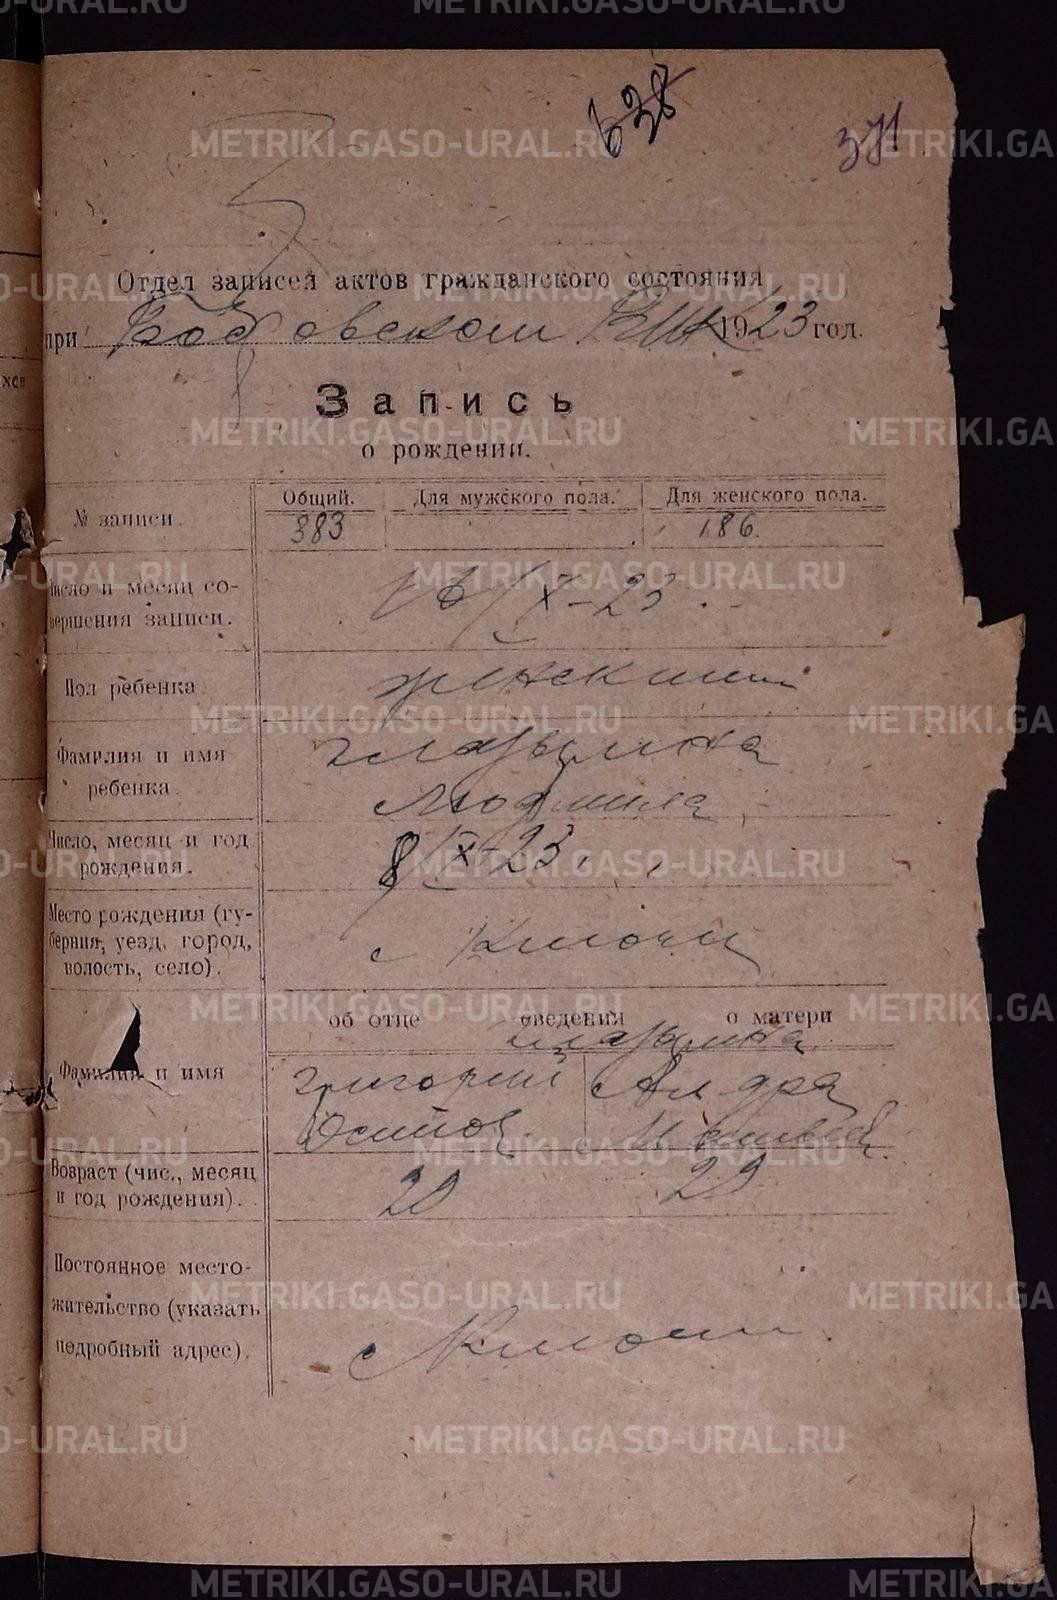 638
371
Отдел записей актов гражданского состояния
при Бобровском ВИК 1923 год.
Запись
о рождении.
№ записи.
Общий.
Для мужского пола.
Для женского пола.
383
186.
Число и месяц со-
вершения записи.
16/X-23.
Пол ребенка
женский
Фамилия и имя
ребенка.
Глазырина
Людмила
Число, месяц и год
рождения.
8/X-23.
Место рождения (гу-
берния, уезд, город,
волость, село).
с Ключи
об отце сведения о матери
Глазырина
Фамилия и имя
Григорий
Осипов
Ал-дра
Матвеев.
Возраст (чис., месяц
и год рождения).
20
29
Постоянное место-
жительство (указать
подробный адрес).
с Ключи.
METRIKI.GASO-URAL.RU